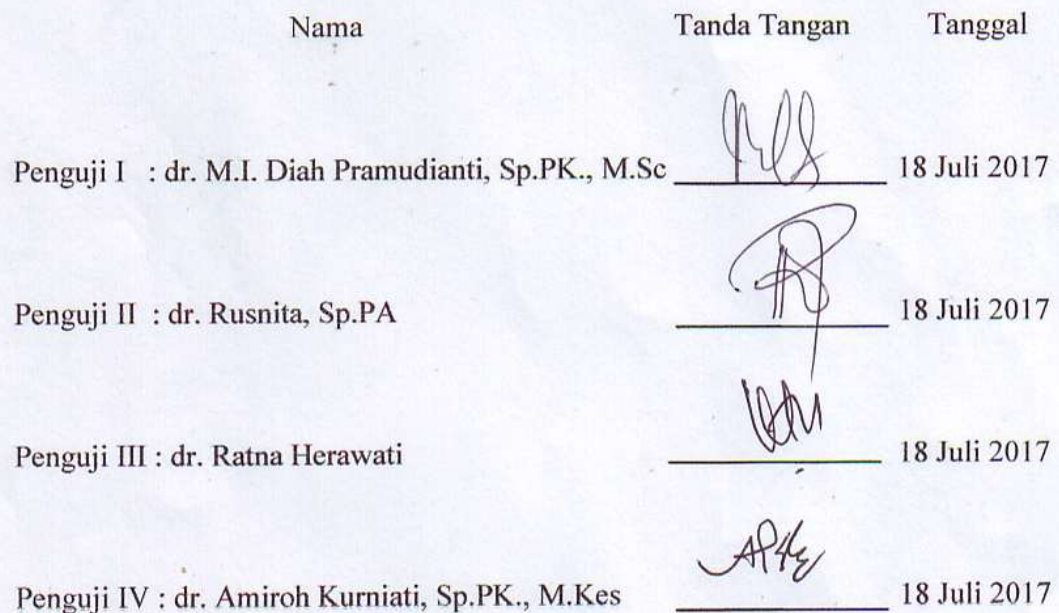 Nama Tanda Tangan Tanggal
Penguji I : dr. M.I. Diah Pramudianti, Sp.PK., M.Sc 18 Juli 2017
Penguji II : dr. Rusnita, Sp.PA 18 Juli 2017
Penguji III : dr. Ratna Herawati 18 Juli 2017
Penguji IV : dr. Amiroh Kurniati, Sp.PK., M.Kes 18 Juli 2017